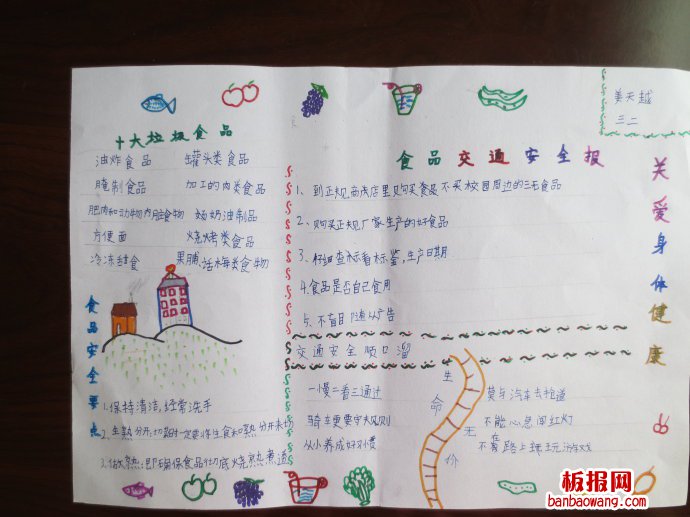 姜天越
三二
十大垃圾食品
油炸食品 罐头类食品
腌制食品 加工的肉类食品
肥肉和动物内脏食物 奶油制品
方便面 烧烤类食品
冷冻甜食 果脯、话梅类食物
食品交通安全报
1、到正规商店里购买食品不买校园周边的三无食品
2、购买正规厂家生产的好食品
3、仔细查标看标鉴,生产日期
4、食品是否自己食用
5、不盲目随从广告
关爱身体健康
食品安全要点
1.保持清洁,经常洗手
2、生熟分开:切菜时一定要将生食和熟分开来切
3.做熟:即确保食品彻底烧熟煮透
交通安全顺口溜
一慢二看三通过
骑车更要守大规则
从小养成好习惯
生命无价
莫与汽车去抢道
不能心急闯红灯
不在路上玩游戏
板报网
banbaowang.com